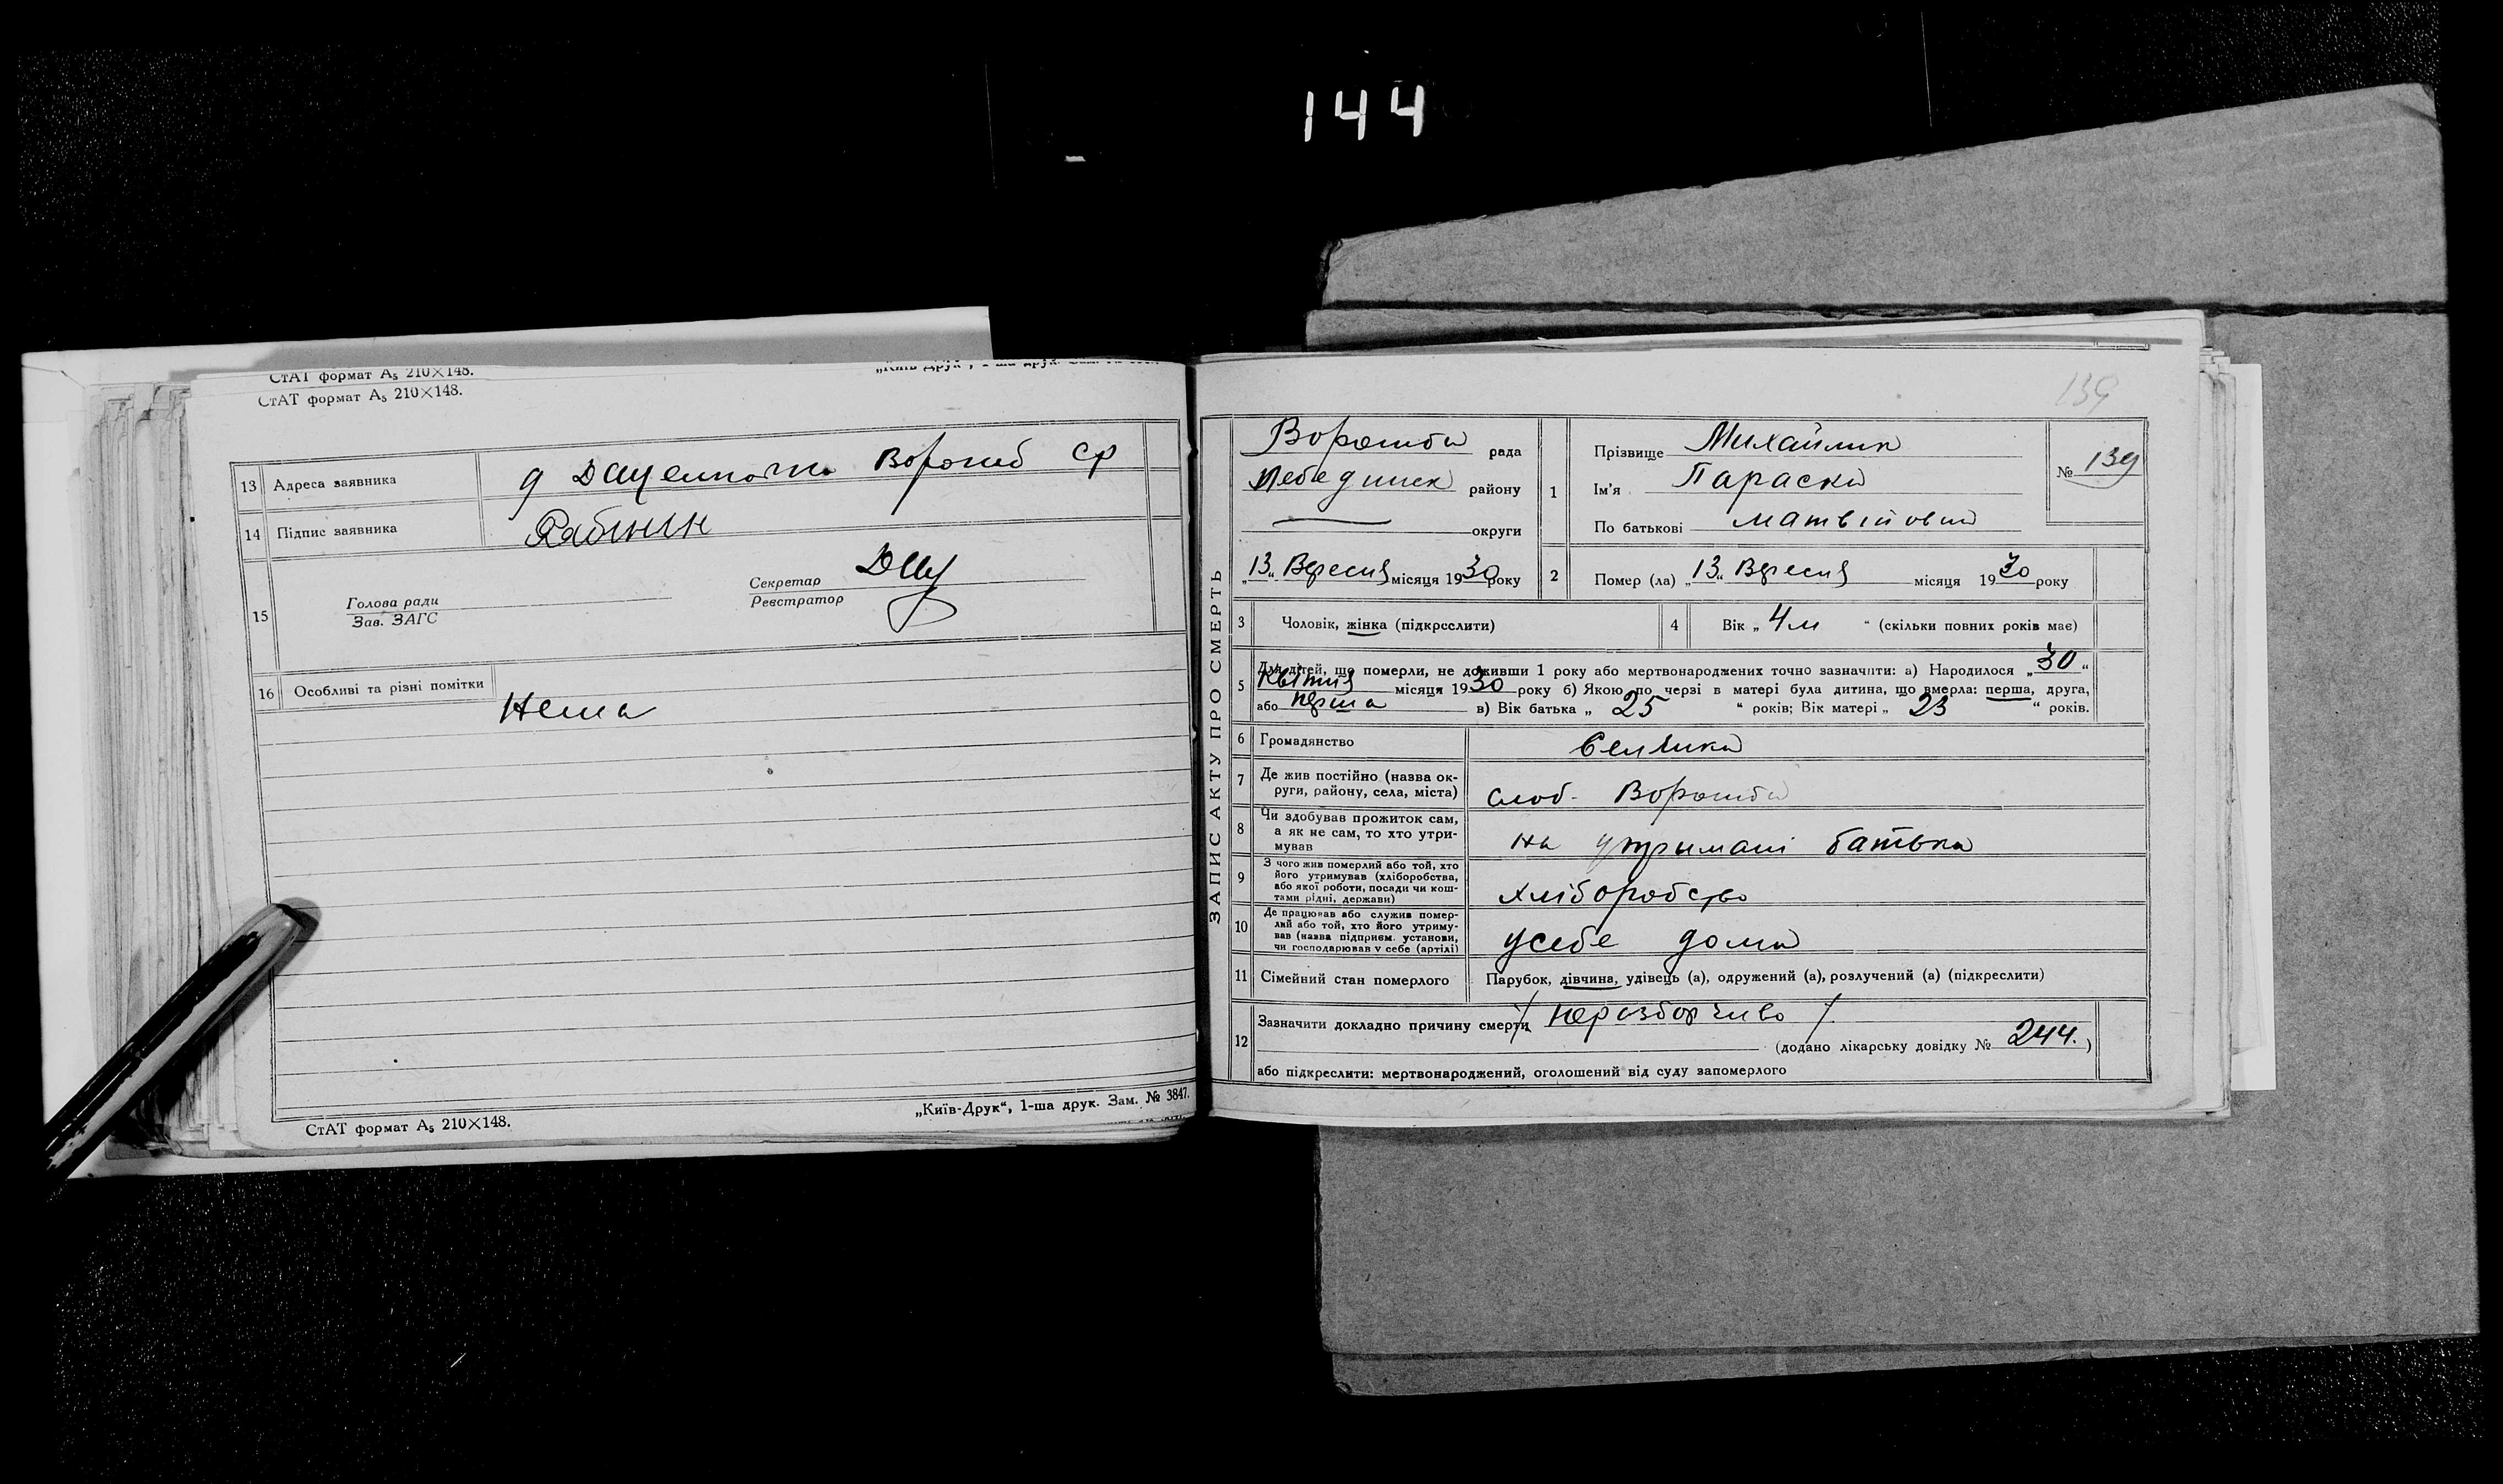 144
СтАТ формат А₅ 210×148.
СтАТ формат А₅ 210×148.
13 Адреса заявника
14 Підпис заявника
15 Голова ради
Зав. ЗАГС
Секретар
Реєстратор
16 Особливі та різні помітки
Нема
„Київ-Друк“, 1-ша друк. Зам. № 3847.
СтАТ формат А₅ 210×148.
139
ЗАПИС АКТУ ПРО СМЕРТЬ
Ворожба рада
Лебединск району
округи
„13“ Вересня місяця 1930 року
1 Прізвище Михайлик
Ім'я Параска
По батькові Матвійовна
№ 139
2 Помер (ла) „13“ Вересня місяця 1930 року
3 Чоловік, жінка (підкреслити)
4 Вік „4 м“ (скільки повних років має)
5 Для дітей, що померли, не доживши 1 року або мертвонароджених точно зазначити: а) Народилося „30“
Квітня місяця 1930 року б) Якою по черзі в матері була дитина, що вмерла: перша, друга,
або перша в) Вік батька „25“ років; Вік матері „23“ років.
6 Громадянство Селянка
7 Де жив постійно (назва ок-
руги, району, села, міста) слоб. Ворожба
8 Чи здобував прожиток сам,
а як не сам, то хто утри-
мував на утримані батька
9 З чого жив померлий або той, хто
його утримував (хліборобства,
або якої роботи, посади чи кош-
тами рідні, держави) хліборобство
10 Де працював або служив помер-
лий або той, хто його утриму-
вав (назва підприєм. установи,
чи господарював у себе (артілі) у себе дома
11 Сімейний стан померлого Парубок, дівчина, удівець (а), одружений (а), розлучений (а) (підкреслити)
12 Зазначити докладно причину смерти / неразборчиво /
(додано лікарську довідку № 244.)
або підкреслити: мертвонароджений, оголошений від суду запомерлого